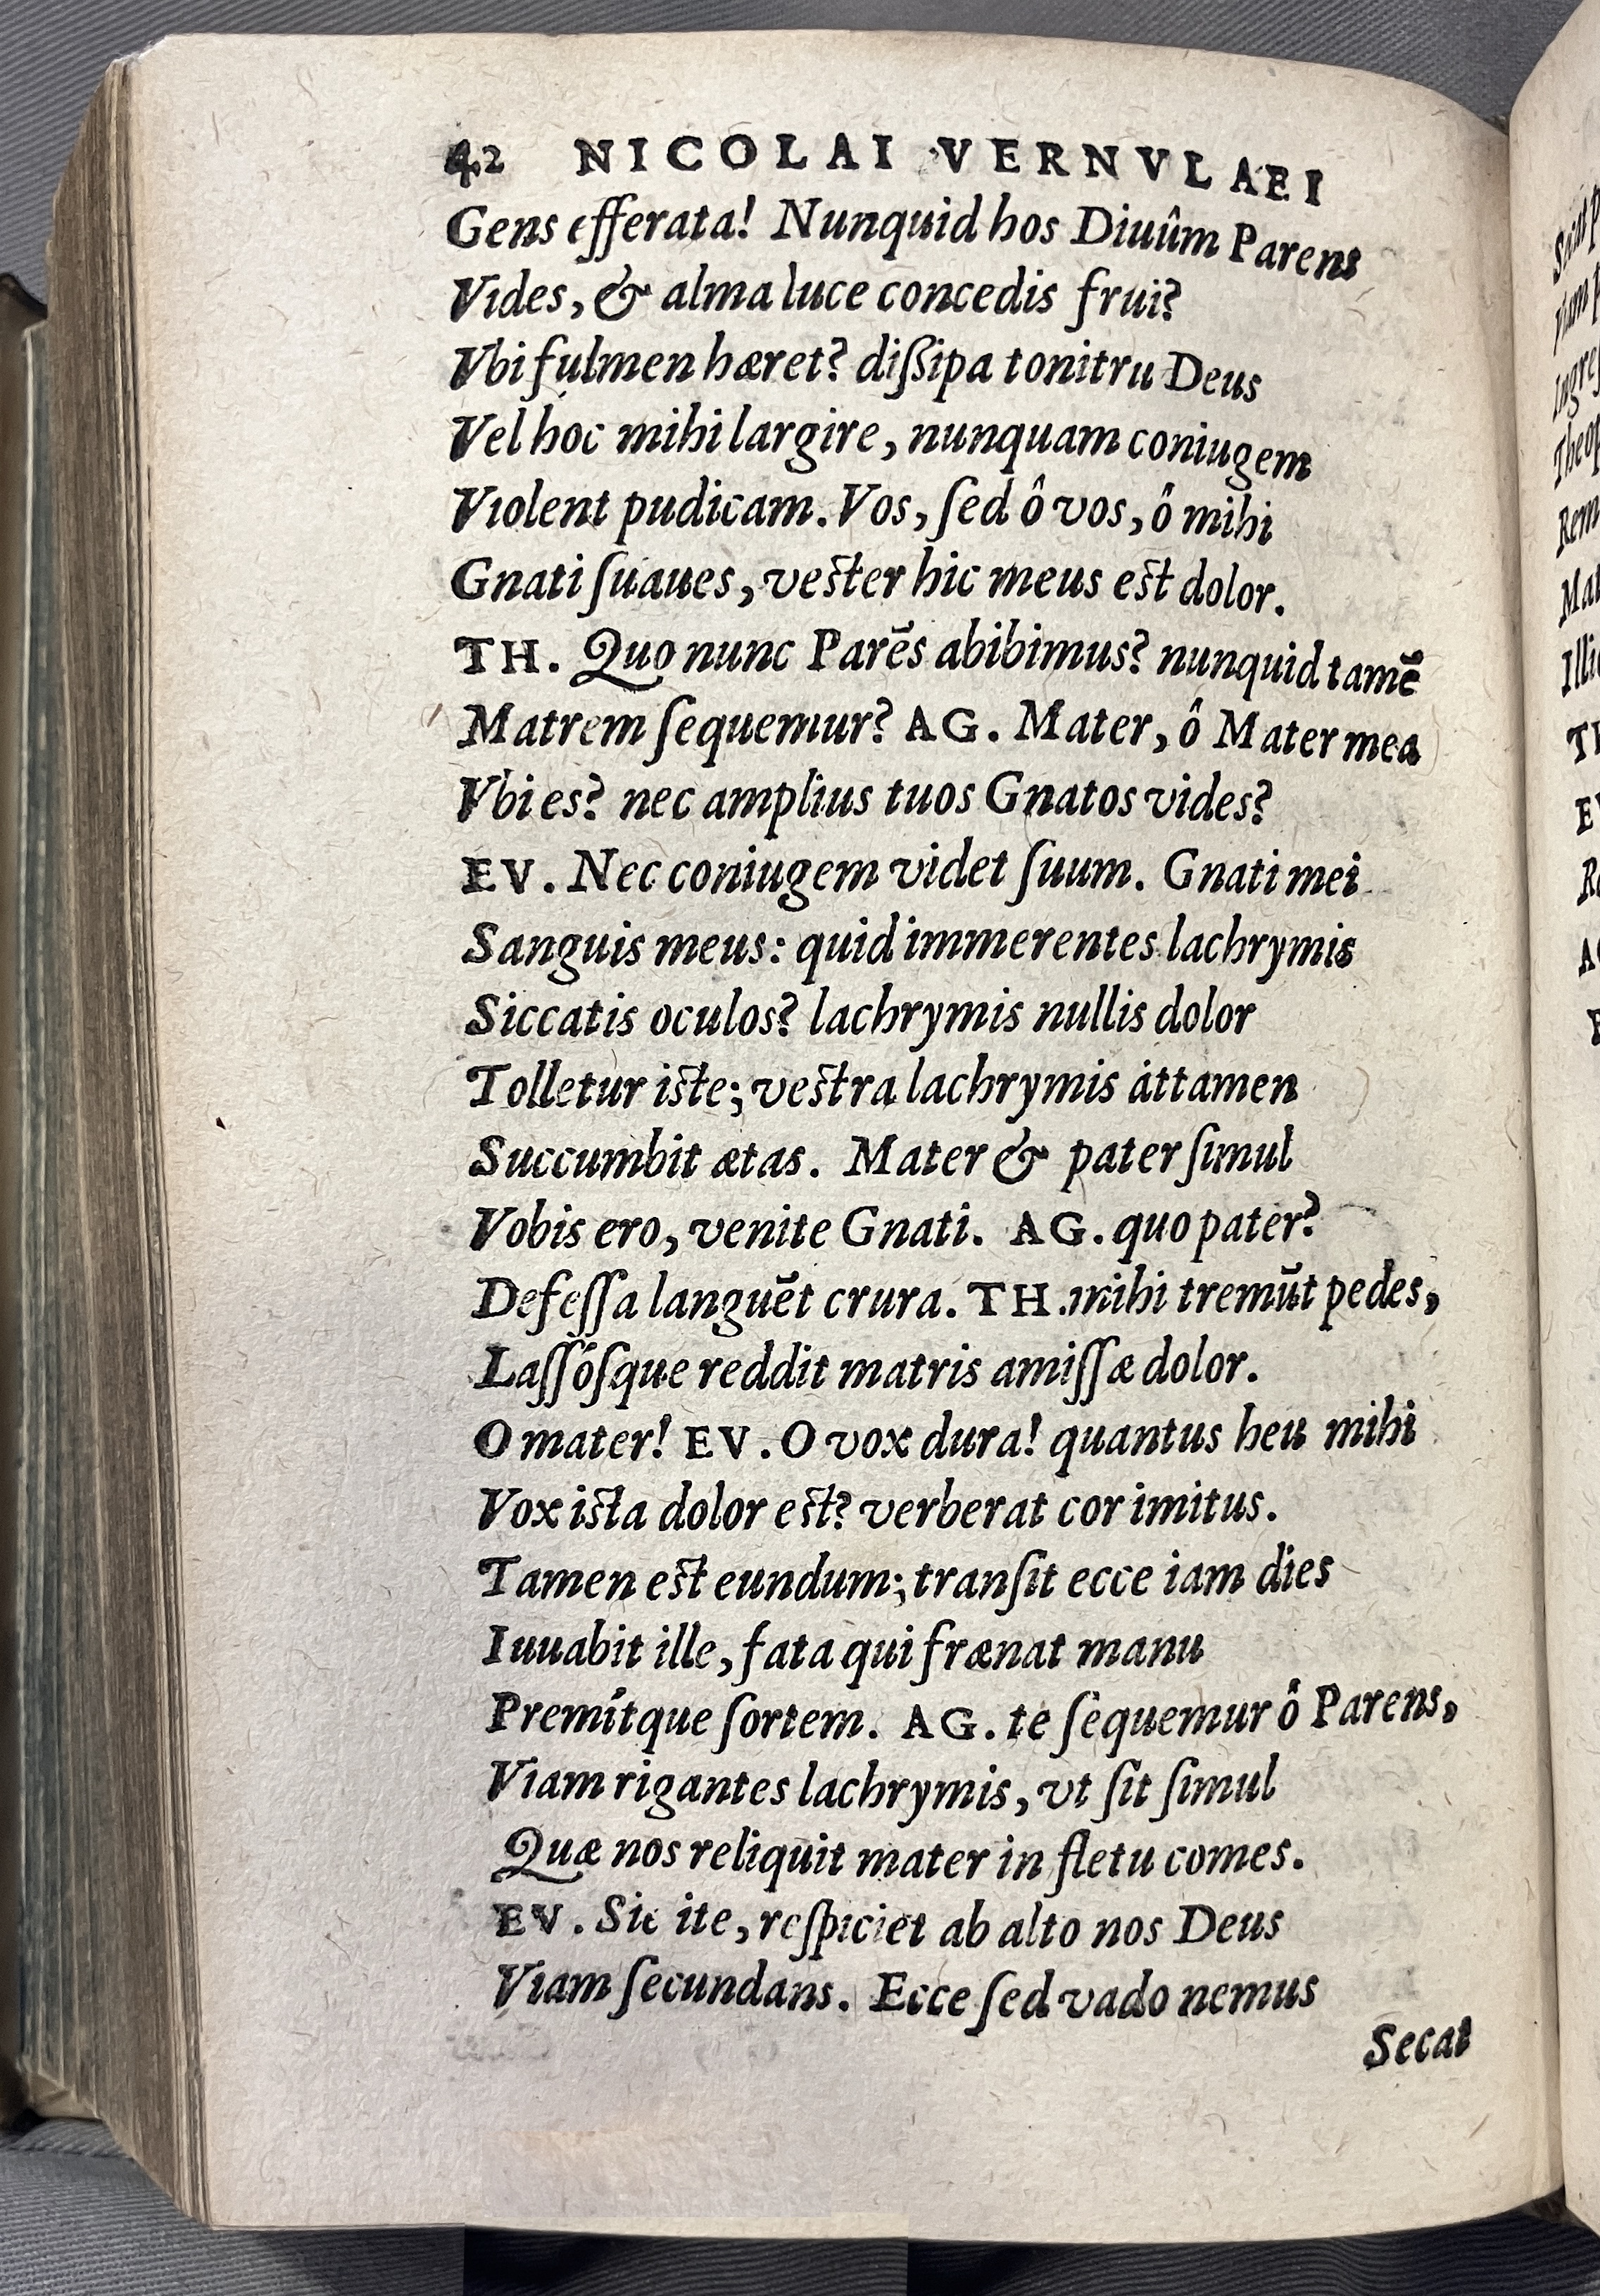 42 NICOLAI VERNVLAEI
Gens efferata! Nunquid hos Diuûm Parens
Vides, & alma luce concedis frui?
Vbi fulmen hæret? dißipa tonitru Deus
Vel hoc mihi largire, nunquam coniugem
Violent pudicam. Vos, ſed ô vos, ô mihi
Gnati ſuaues, veſter hic meus eſt dolor.
TH. Quo nunc Parēs abibimus? nunquid tamē
Matrem ſequemur? AG. Mater, ô Mater mea
Vbi es? nec amplius tuos Gnatos vides?
EV. Nec coniugem videt ſuum. Gnati mei
Sanguis meus: quid immerentes lachrymis
Siccatis oculos? lachrymis nullis dolor
Tolletur iſte; veſtra lachrymis áttamen
Succumbit ætas. Mater & pater ſimul
Vobis ero, venite Gnati. AG. quo pater?
Defeſſa languēt crura. TH. mihi tremūt pedes,
Laſſóſque reddit matris amiſſæ dolor.
O mater! EV. O vox dura! quantus heu mihi
Vox iſta dolor eſt? verberat cor imitus.
Tamen eſt eundum; tranſit ecce iam dies
Iuuabit ille, fata qui frænat manu
Premítque ſortem. AG. te ſequemur ô Parens,
Viam rigantes lachrymis, vt ſit ſimul
Quæ nos reliquit mater in fletu comes.
EV. Sic ite, reſpiciet ab alto nos Deus
Viam ſecundans. Ecce ſed vado nemus
Secat